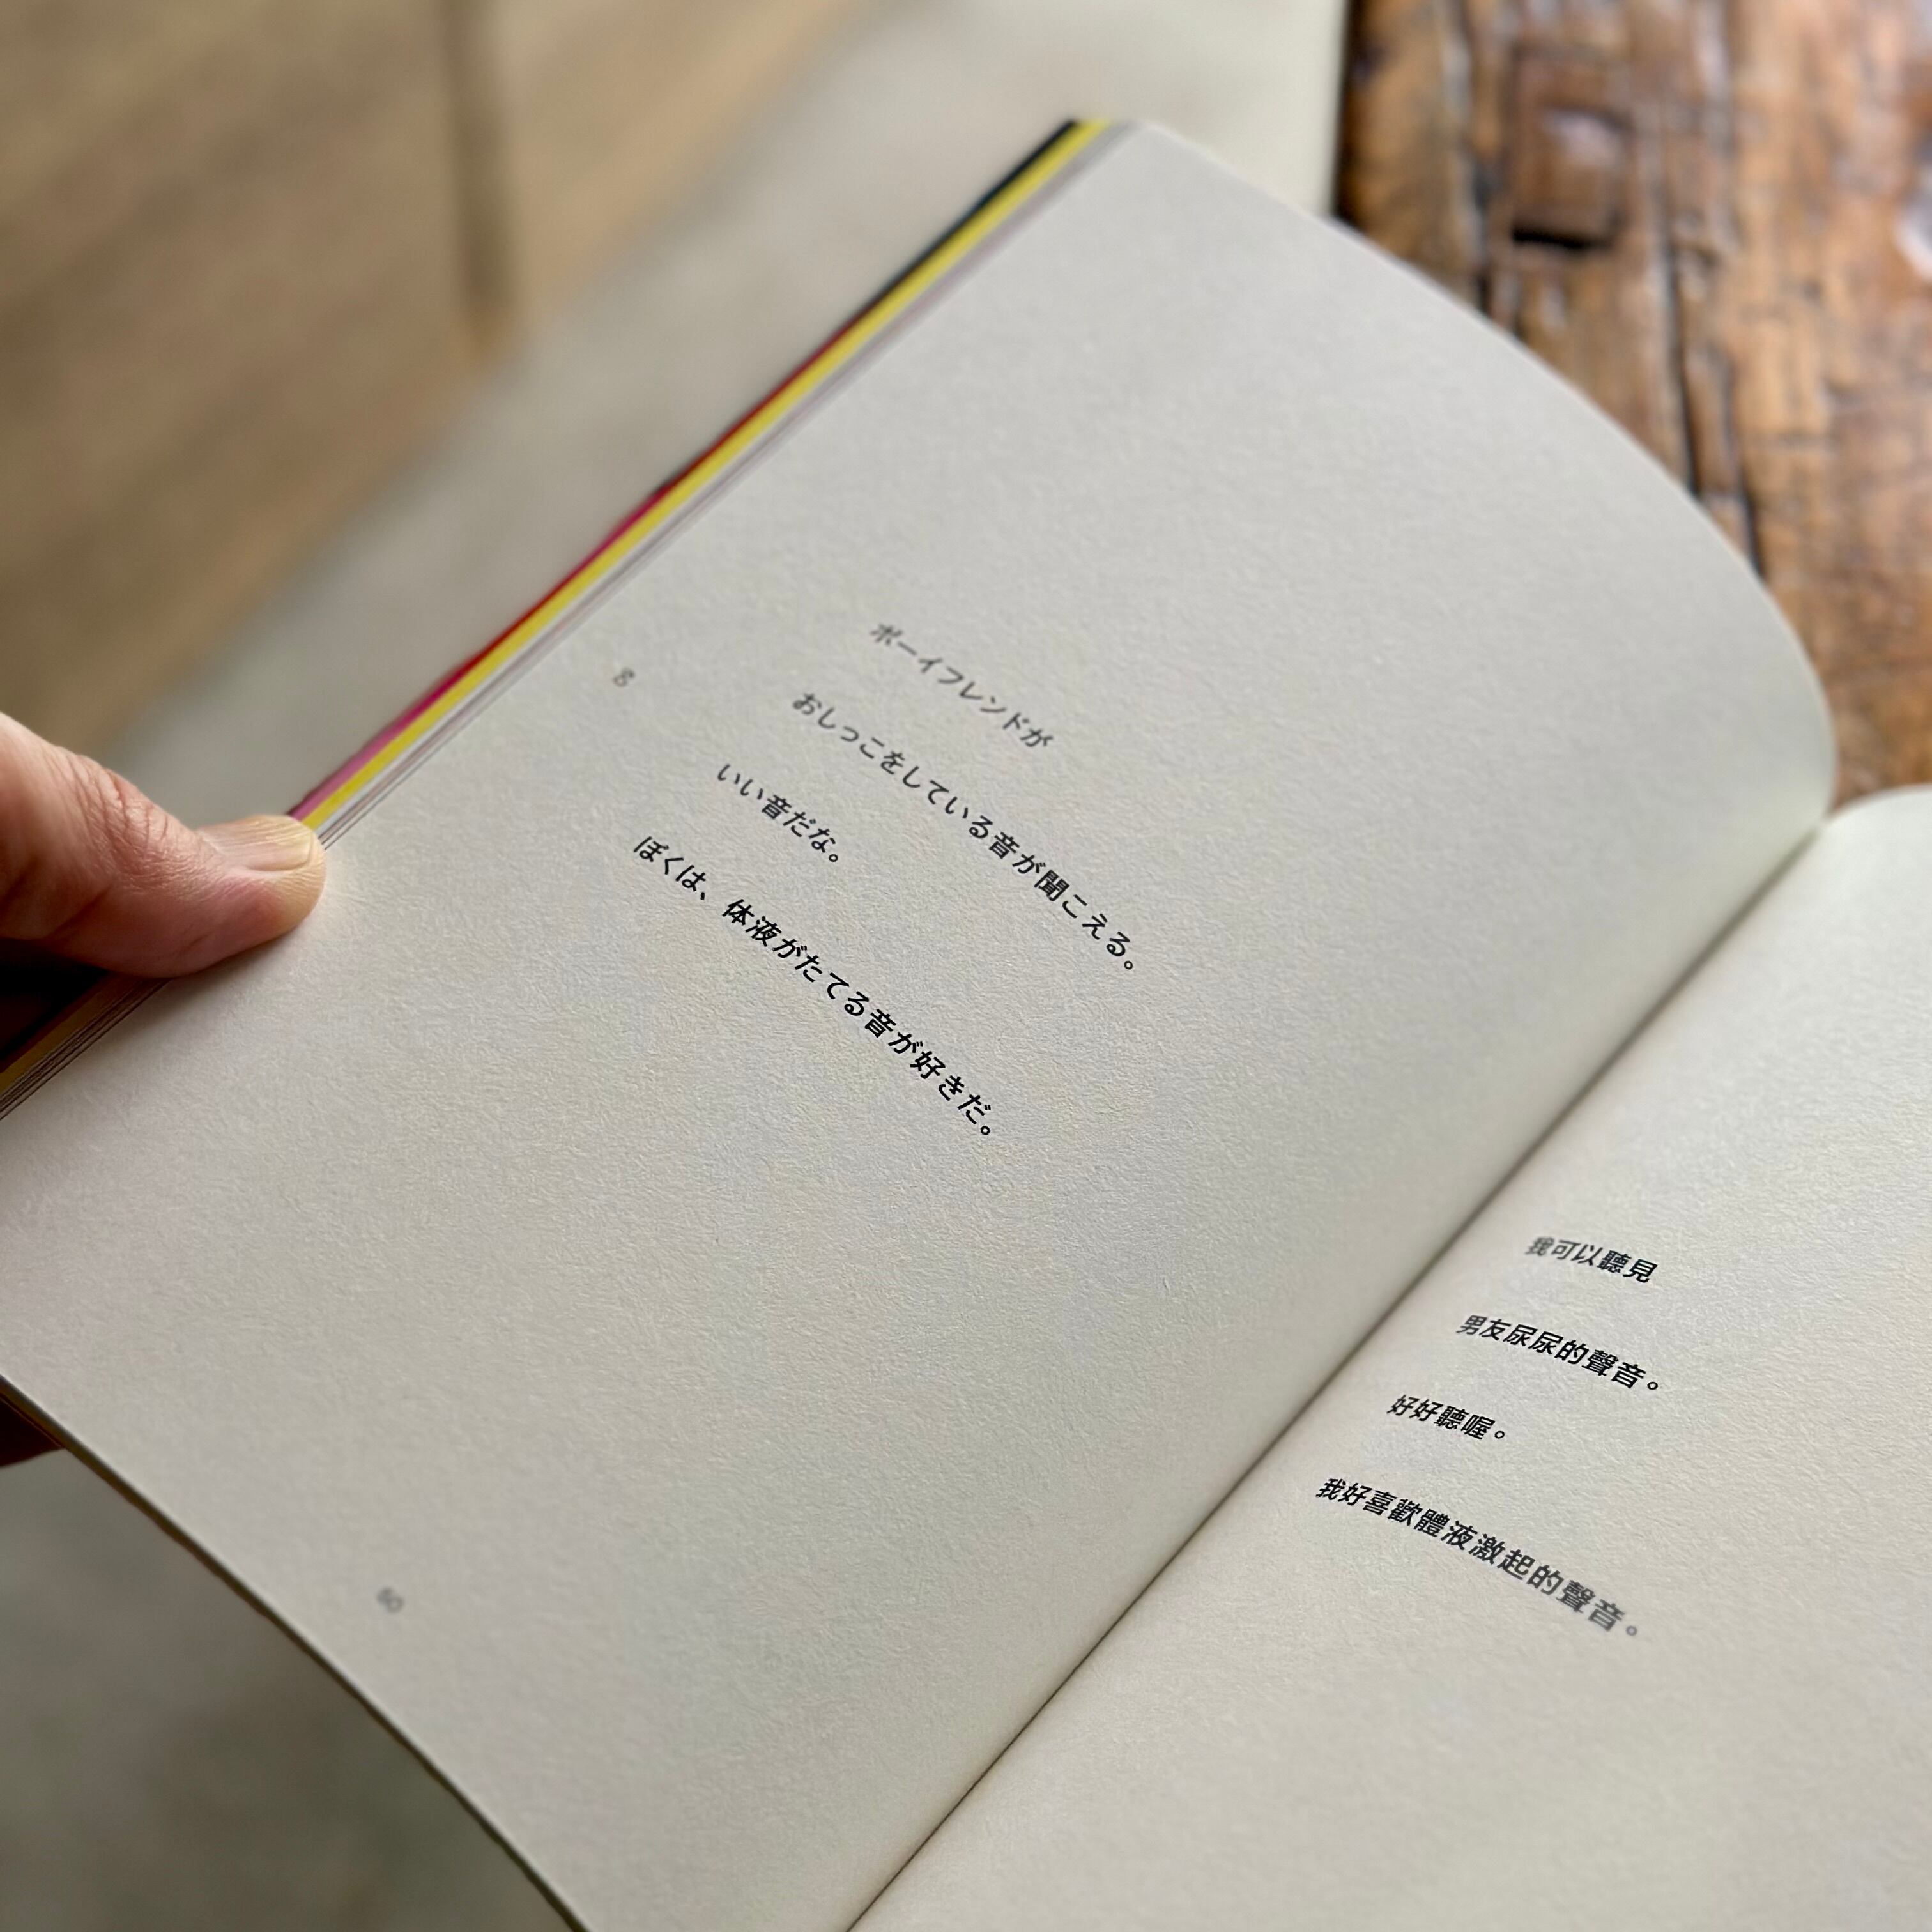 ボーイフレンドが
おしっこをしている音が聞こえる。
いい音だな。
ぼくは、体液がたてる音が好きだ。
60
我可以聽見
男友尿尿的聲音。
好好聽喔。
我好喜歡體液激起的聲音。